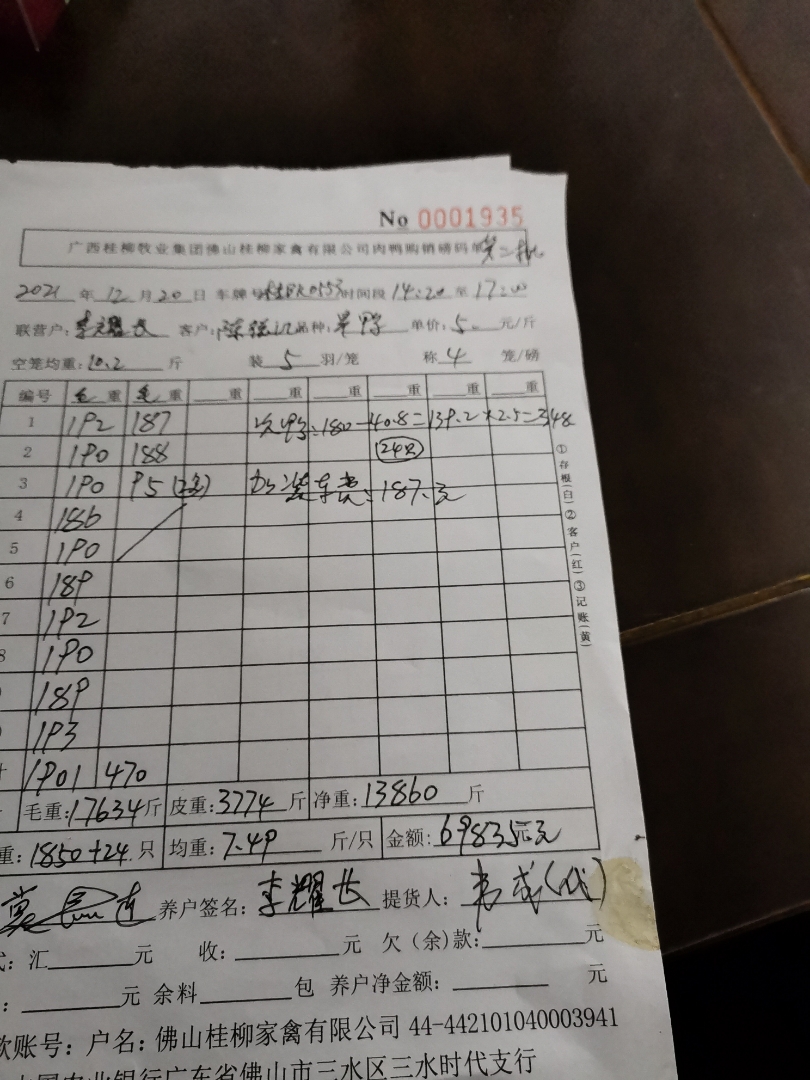 No 0001935
广西桂柳牧业集团佛山桂柳家禽有限公司肉鸭购销磅码单 第二批
2021 年 12 月 20 日 车牌号 时间段 14:20 至 17:00
联营户: 李耀长 客户: 品种: 单价: 5. 元/斤
空笼均重: 10.2 斤 装 5 羽/笼 称 4 笼/磅
编号 毛重 毛重 重 重 重 重 重 重
1 192 187 次鸭: 180-40.8=139.2×2.5=348
2 190 188 (24只)
3 190 95 加装车费: 187.元
4 186
5 190
6 189
7 192
8 190
189
193
1901 470
毛重: 17634 斤 皮重: 3774 斤 净重: 13860 斤
重: 1850+24 只 均重: 7.49 斤/只 金额: 69835元
养户签名: 李耀长 提货人:
式: 汇 元 收: 元 欠(余)款: 元
: 元 余料 包 养户净金额: 元
款账号: 户名: 佛山桂柳家禽有限公司 44-442101040003941
中国农业银行广东省佛山市三水区三水时代支行
①存根(白)②客户(红)③记账(黄)